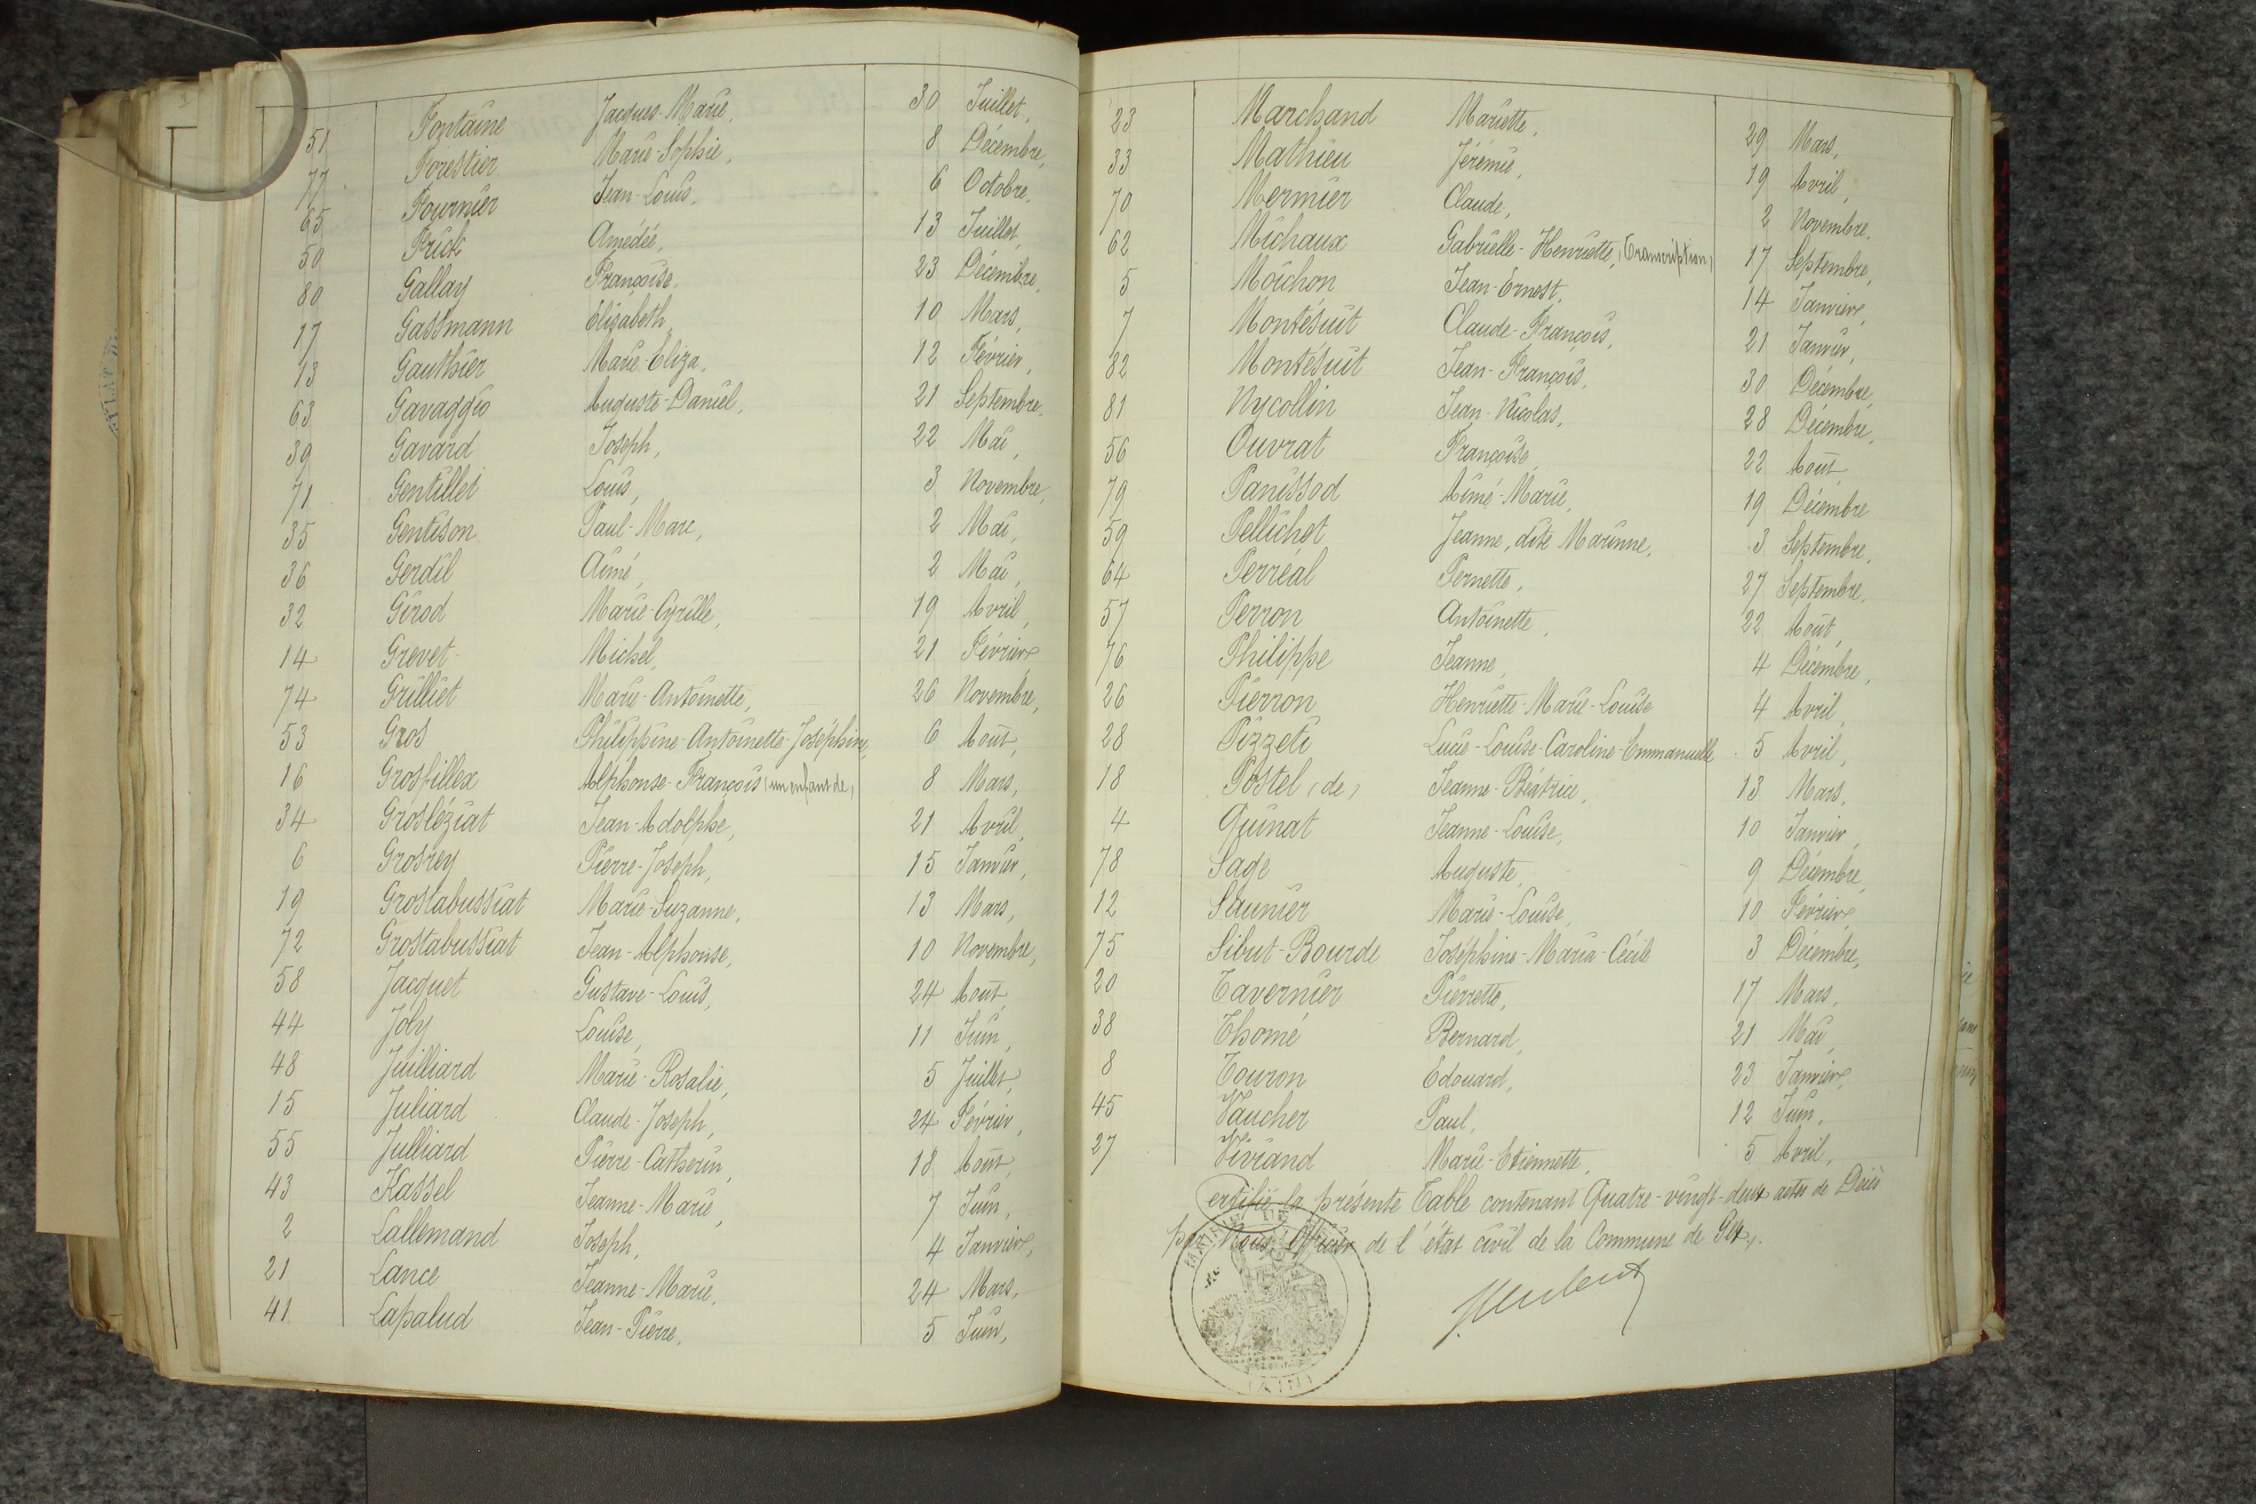 51 Fontaine Jacques-Marie, 30 Juillet,
77 Forestier Marie-Sophie, 8 Décembre,
65 Fournier Jean-Louis, 6 Octobre,
50 Frick Amédée, 13 Juillet,
80 Gallay Françoise, 23 Décembre,
17 Gassmann Elisabeth, 10 Mars,
13 Gauthier Marie-Eliza, 12 Février,
63 Gavaggio Auguste-Daniel, 21 Septembre,
39 Gavard Joseph, 22 Mai,
71 Gentillet Louis, 3 Novembre,
35 Gentison Paul-Marc, 2 Mai,
36 Gerdil Aimé, 2 Mai,
32 Girod Marie-Cyrille, 19 Avril,
14 Grevet Michel, 21 Février,
74 Grilliet Marie-Antoinette, 26 Novembre,
53 Gros Philippine-Antoinette-Joséphine, 6 Août,
16 Grosfillex Alphonse-François (un enfant de) 8 Mars,
34 Grosléziat Jean-Adolphe, 21 Avril,
6 Grosrey Pierre-Joseph, 15 Janvier,
19 Grostabussiat Marie-Suzanne, 13 Mars,
72 Grostabussiat Jean-Alphonse, 10 Novembre,
58 Jacquet Gustave-Louis, 24 Août,
44 Joly Louise, 11 Juin,
48 Juilliard Marie-Rosalie, 5 Juillet,
15 Juliard Claude-Joseph, 24 Février,
55 Julliard Pierre-Catherin, 18 Août,
43 Kassel Jeanne-Marie, 7 Juin,
2 Lallemand Joseph, 4 Janvier,
21 Lance Jeanne-Marie, 24 Mars,
41 Lapalud Jean-Pierre, 5 Juin,
23 Marchand Mariette, 29 Mars,
33 Mathieu Jérémie, 19 Avril,
70 Mermier Claude, 2 Novembre,
62 Michaux Gabrielle-Henriette, (Transcription) 17 Septembre,
5 Moichon Jean-Ernest, 14 Janvier,
7 Montésuit Claude-François, 21 Janvier,
82 Montésuit Jean-François, 30 Décembre,
81 Nycollin Jean-Nicolas, 28 Décembre,
56 Ouvrat Françoise, 22 Août,
79 Panissod Aimé-Marie, 19 Décembre
59 Pellichet Jeanne, dite Marinne, 3 Septembre,
64 Perréal Pernette, 27 Septembre,
57 Perron Antoinette, 22 Août,
76 Philippe Jeanne, 4 Décembre,
26 Pierron Henriette-Marie-Louise 4 Avril,
28 Pizzeti Lucie-Louise-Caroline-Emmanuelle 5 Avril,
18 Postel (de) Jeanne-Béatrice, 13 Mars,
4 Quinat Jeanne-Louise, 10 Janvier,
78 Sage Auguste, 9 Décembre,
12 Saunier Marie-Louise, 10 Février,
75 Sibut-Bourde Joséphine-Maria-Cécile 3 Décembre,
20 Tavernier Pierrette, 17 Mars,
38 Thomé Bernard, 21 Mai,
8 Touron Edouard, 23 Janvier,
45 Vaucher Paul, 12 Juin,
27 Viviand Marie-Etiennette, 5 Avril,
Certifié la présente Table contenant Quatre-vingt-deux actes de Décès
par Nous Officier de l'état civil de la Commune de Gex.
MAIRIE DE
(AIN)